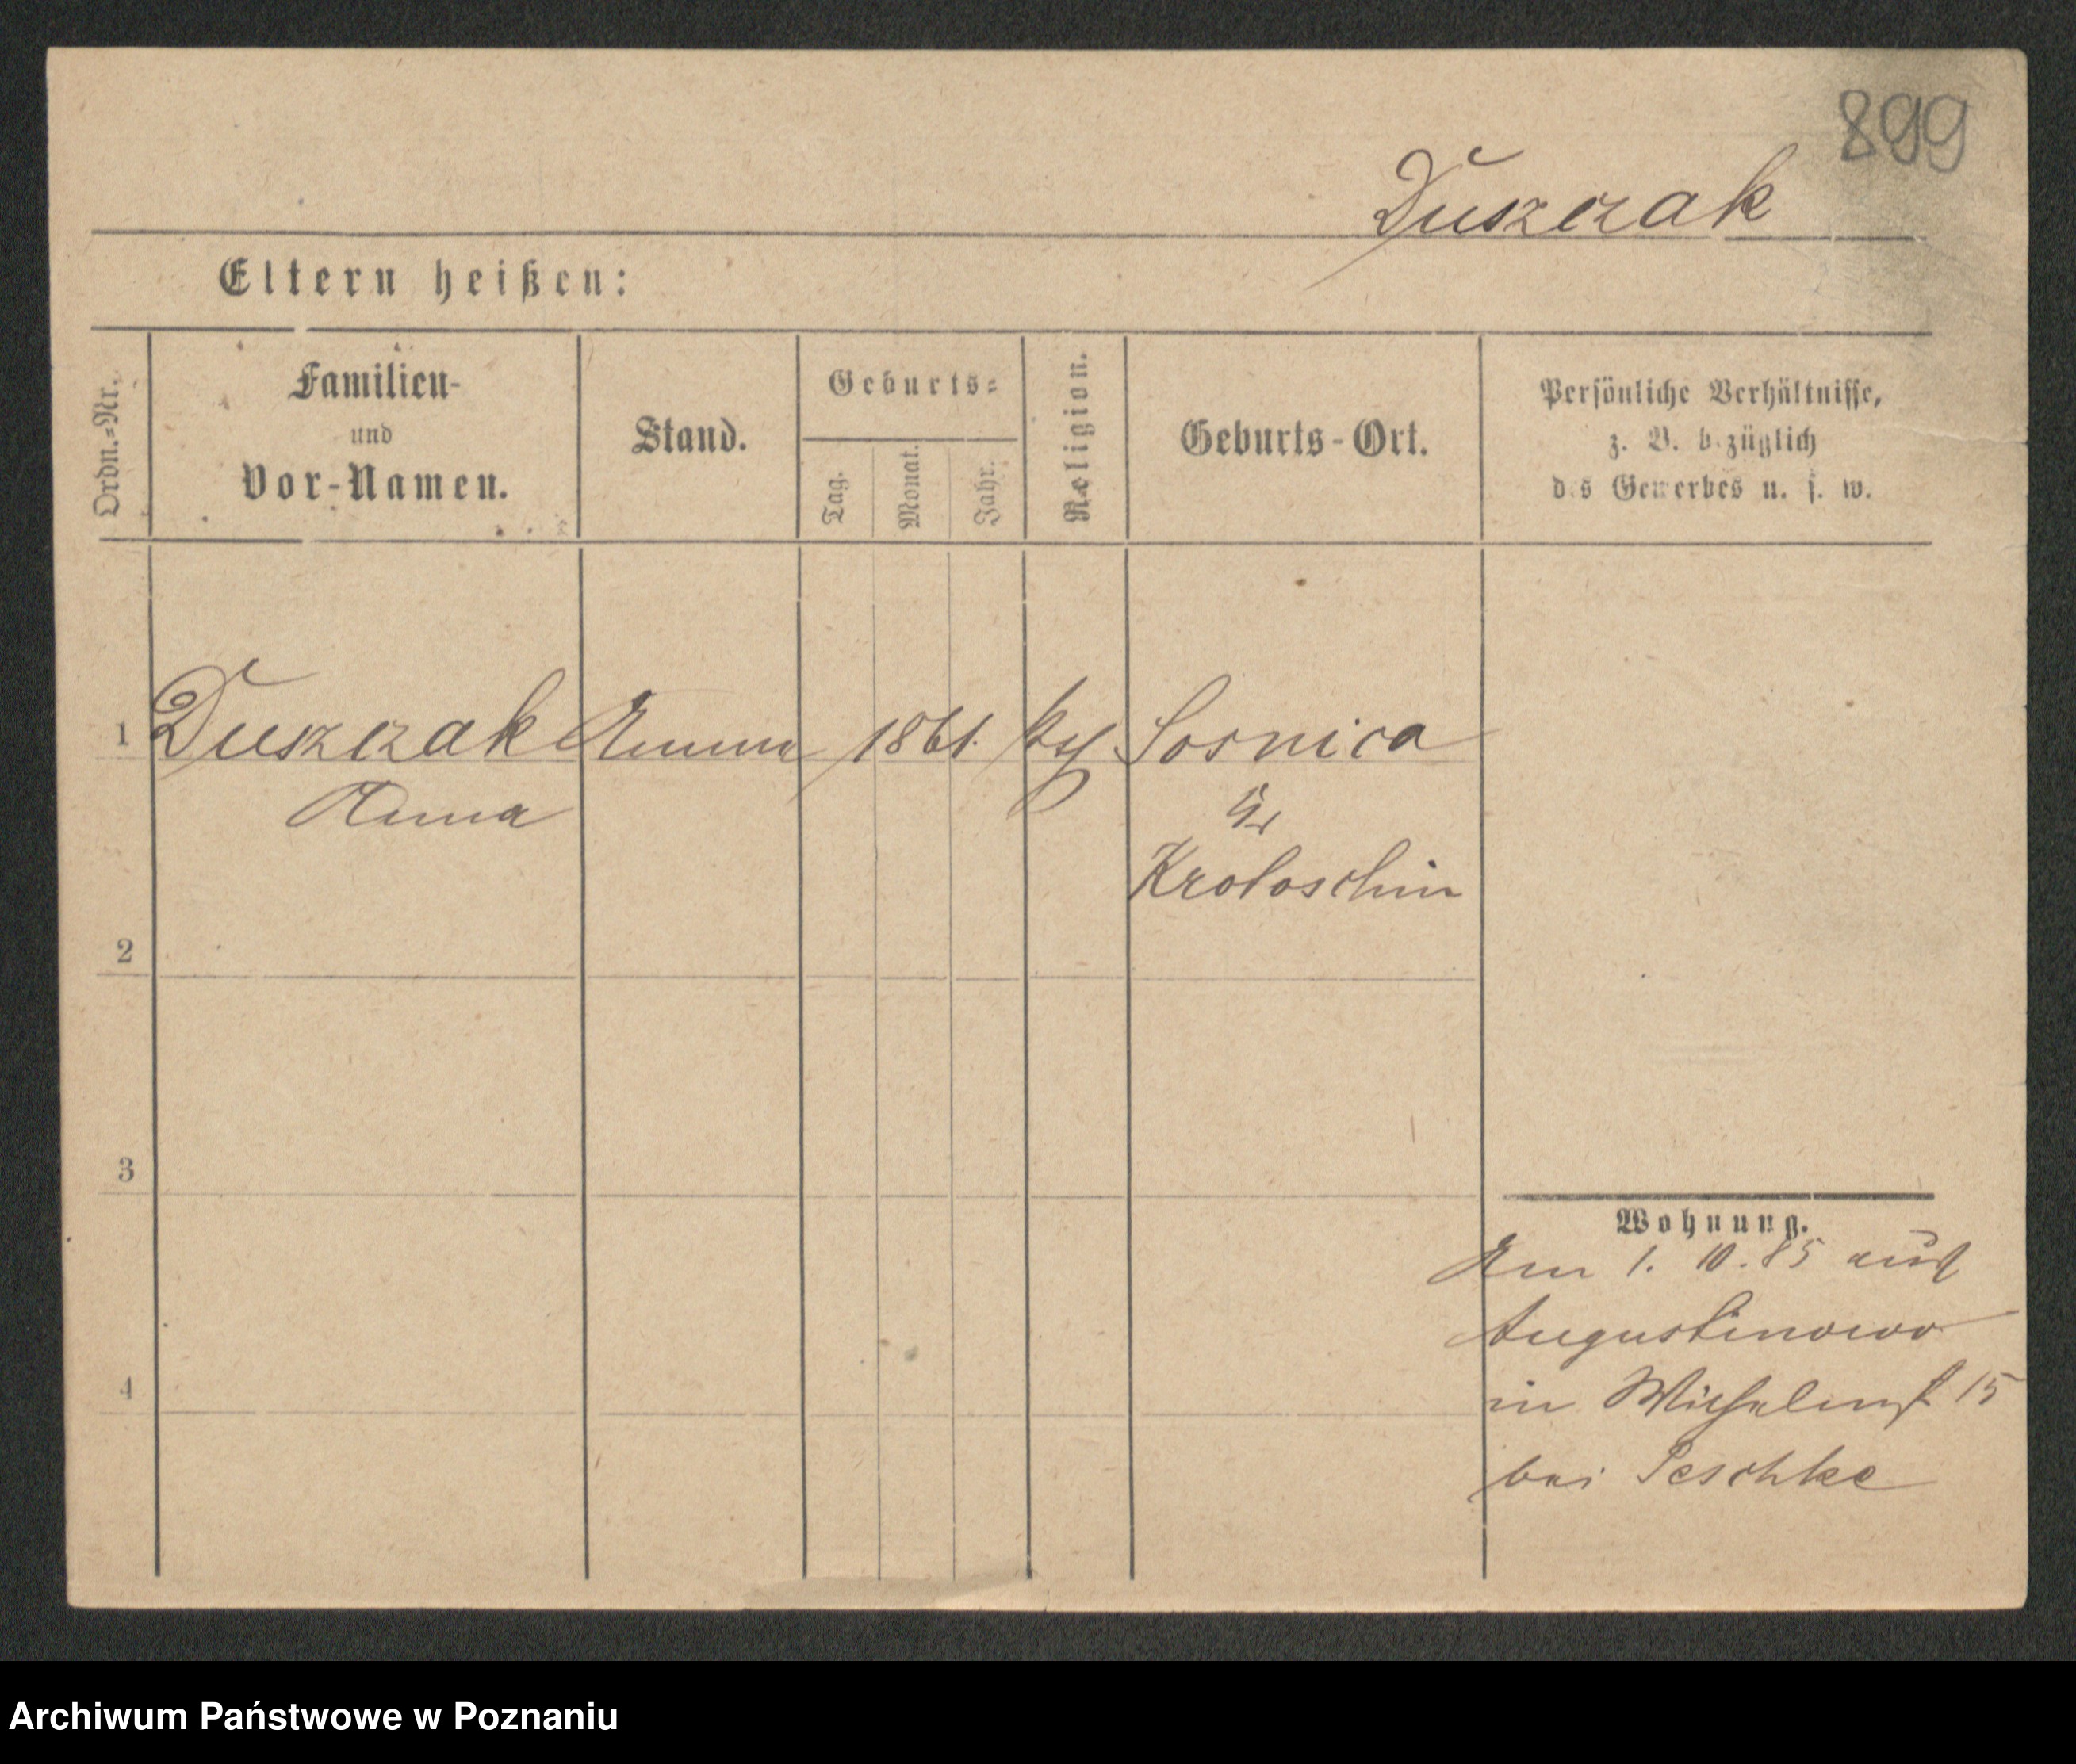 899
Duszczak
Eltern heißen:
Ordn.=Nr.
Familien-
und
Vor-Namen.
Stand.
Geburts=
Tag.
Monat.
Jahr.
Religion.
Geburts-Ort.
Persönliche Verhältnisse,
z. B. bezüglich
des Gewerbes u. s. w.
1 Duszczak Amme 1861. kath Sosnica
Anna
Kr
Krotoschin
2
3
4
Wohnung.
Am 1. 10. 85 aus
Augustinowo
in Wilhelmst 15
bei Peschke
Archiwum Państwowe w Poznaniu